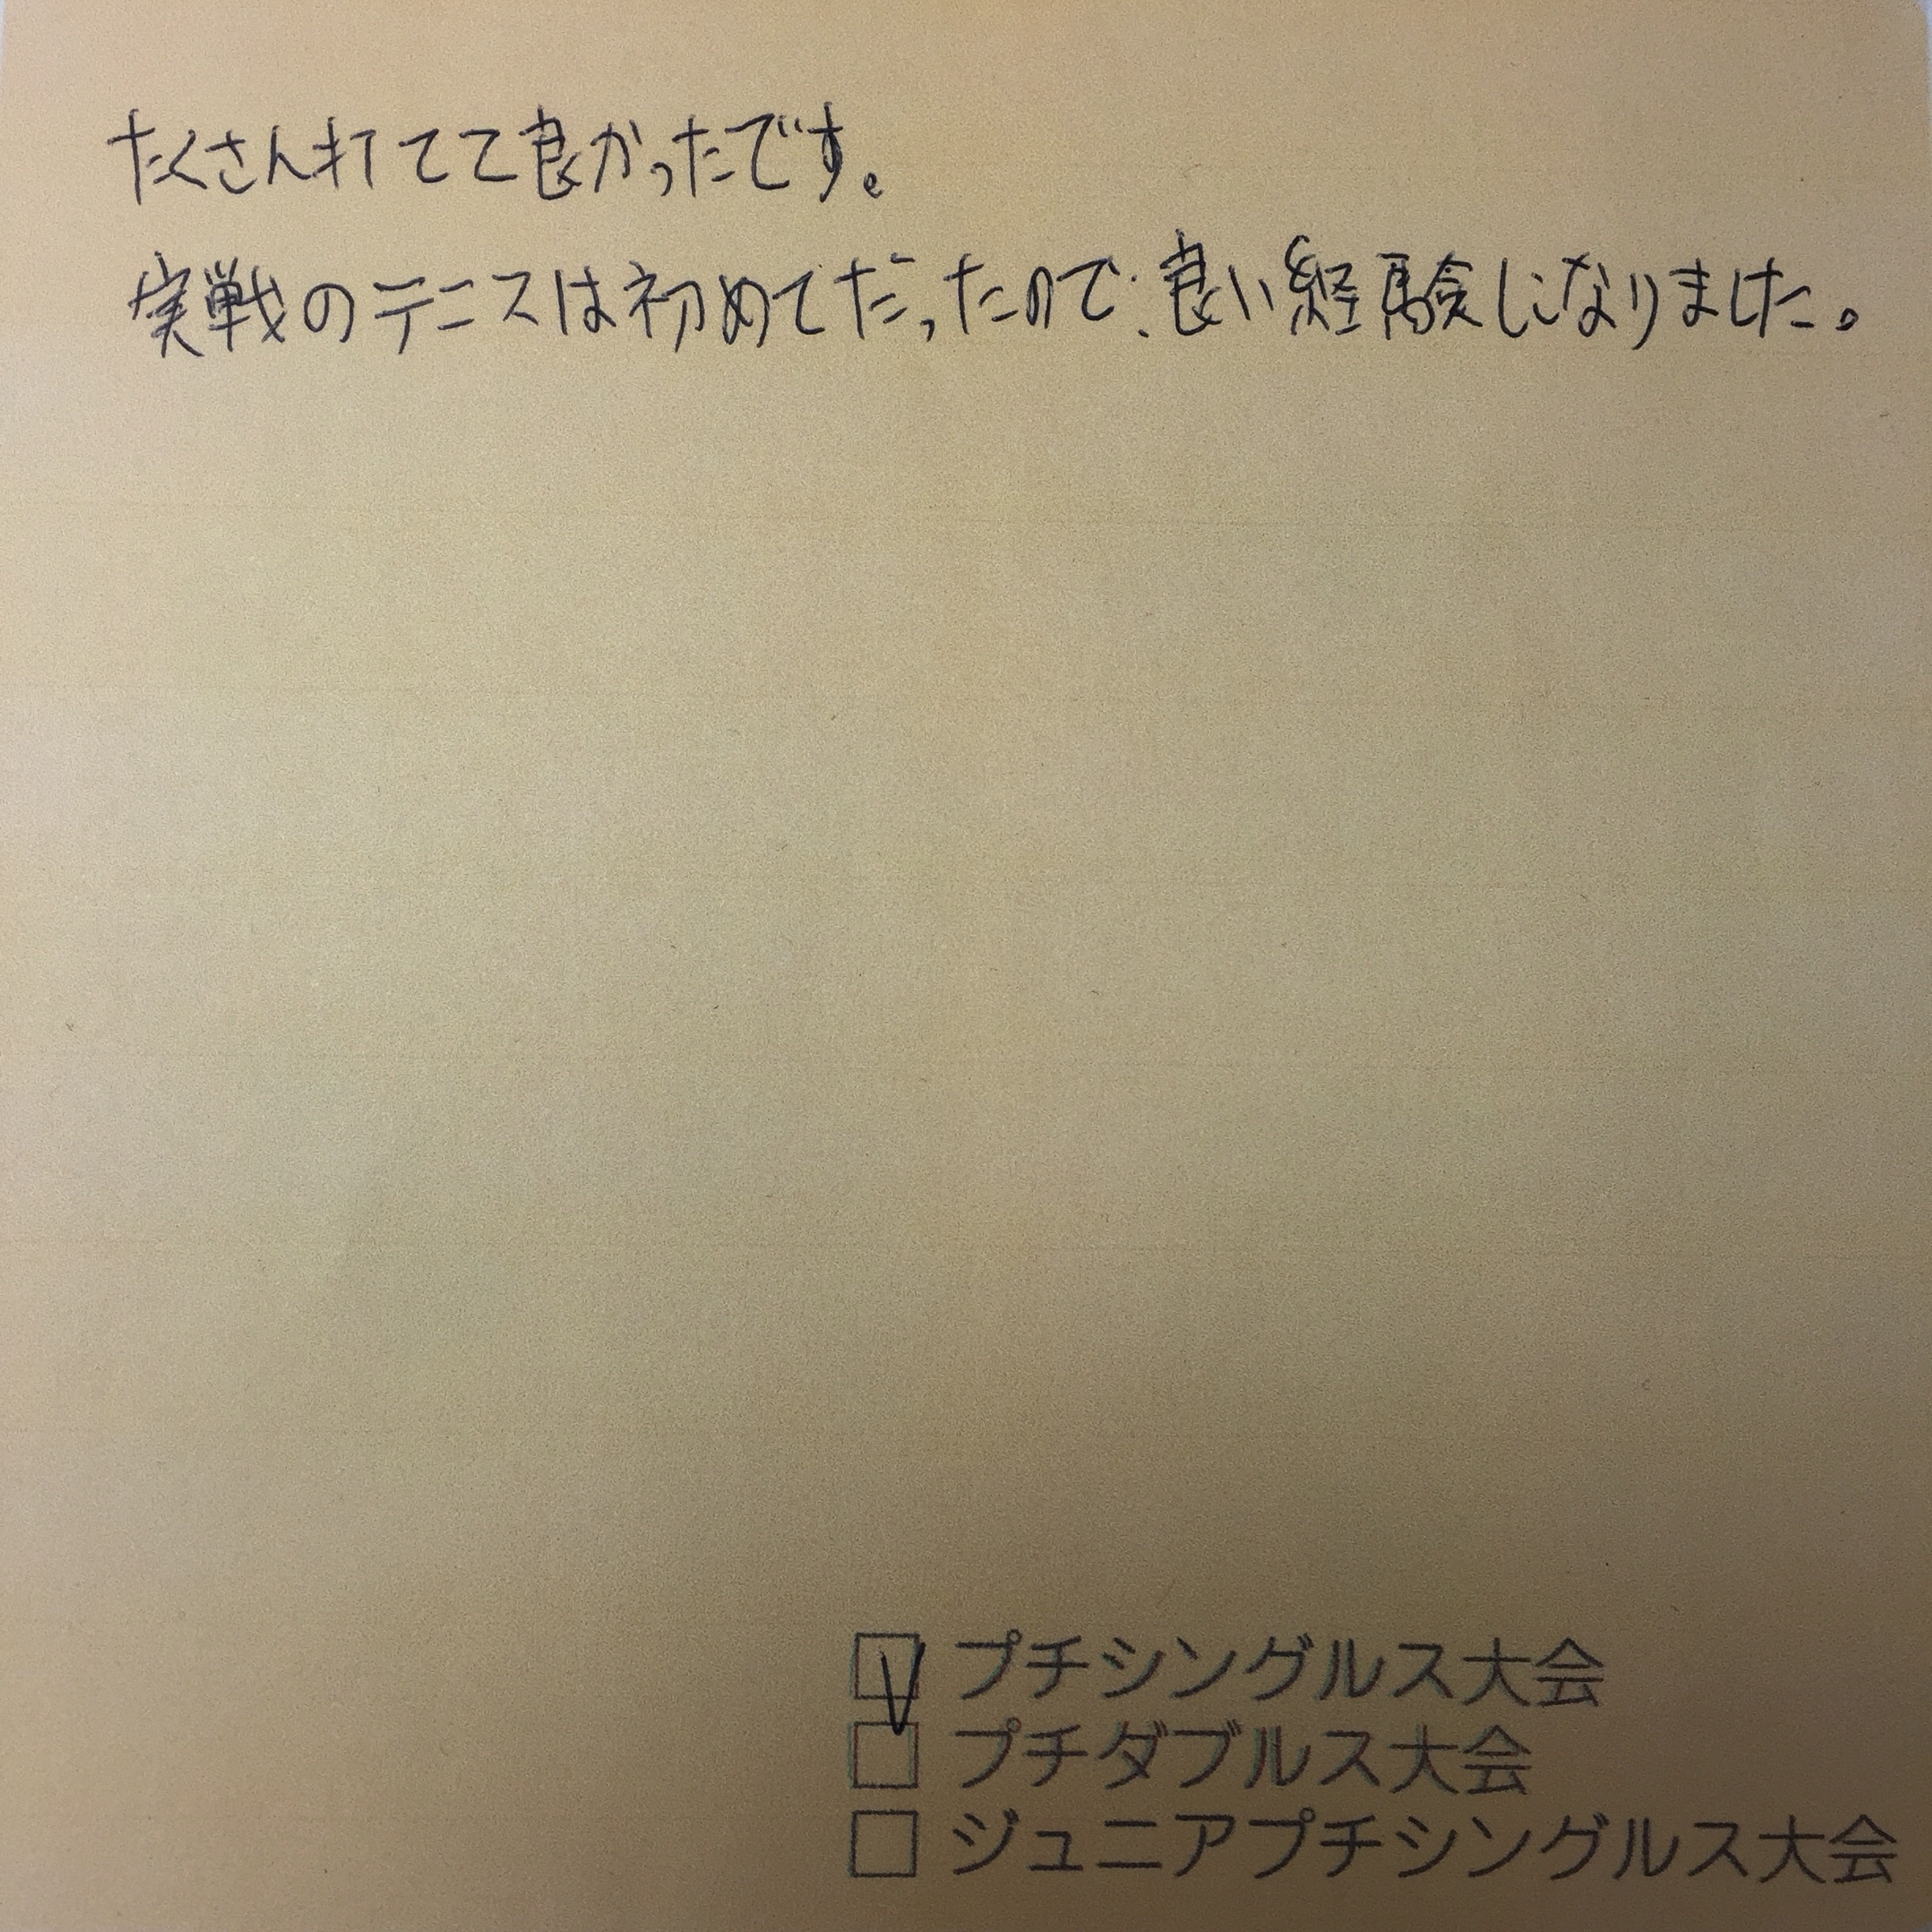 たくさん打てて良かったです。
実戦のテニスは初めてだったので、良い経験になりました。
☑ プチシングルス大会
□ プチダブルス大会
□ ジュニアプチシングルス大会